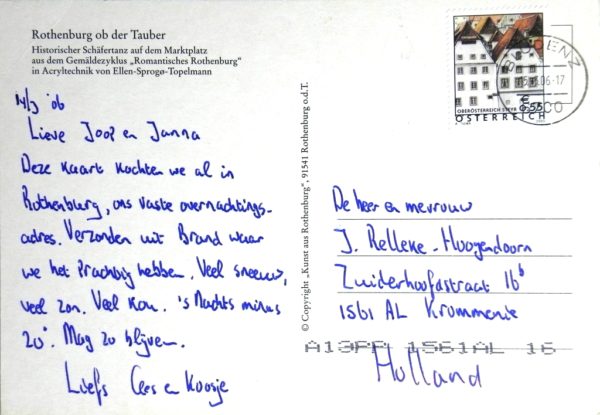 Rothenburg ob der Tauber
Historischer Schäfertanz auf dem Marktplatz
aus dem Gemäldezyklus „Romantisches Rothenburg“
in Acryltechnik von Ellen-Sprogø-Topelmann
14/3 '06
Lieve Joop en Janna
Deze kaart kochten we al in
Rothenburg, ons vaste overnachtings-
adres. Verzonden uit Brand waar
we het prachtig hebben. Veel sneeuw,
veel zon. Veel kou. 's Nachts minus
20°. Mag zo blijven.
Liefs Cees en Koosje
© Copyright „Kunst aus Rothenburg“, 91541 Rothenburg o.d.T.
OBERÖSTERREICH STEYR
€ 0,55
ÖSTERREICH
BLUDENZ
De heer en mevrouw
J. Relleke-Hoogendoorn
Zuiderhoofdstraat 16b
1561 AL Krommenie
A13PP 1561AL 16
Holland